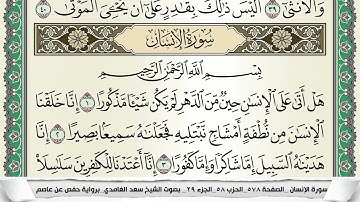 وَالْأُنثَىٰ ٣٩ أَلَيْسَ ذَٰلِكَ بِقَٰدِرٍ عَلَىٰٓ أَن يُحْـِۧىَ الْمَوْتَىٰ ٤٠
سُورَةُ الْإِنسَانِ
بِسْمِ اللَّهِ الرَّحْمَٰنِ الرَّحِيمِ
هَلْ أَتَىٰ عَلَى الْإِنسَٰنِ حِينٌ مِّنَ الدَّهْرِ لَمْ يَكُن شَيْـًٔا مَّذْكُورًا ١ إِنَّا خَلَقْنَا
الْإِنسَٰنَ مِن نُّطْفَةٍ أَمْشَاجٍ نَّبْتَلِيهِ فَجَعَلْنَٰهُ سَمِيعًۢا بَصِيرًا ٢ إِنَّا
هَدَيْنَٰهُ السَّبِيلَ إِمَّا شَاكِرًا وَإِمَّا كَفُورًا ٣ إِنَّآ أَعْتَدْنَا لِلْكَٰفِرِينَ سَلَٰسِلَا۟
سورة الإنسان _ الصفحة ٥٧٨ _ الحزب ٥٨ _ الجزء ٢٩ _ بصوت الشيخ سعد الغامدي _ برواية حفص عن عاصم